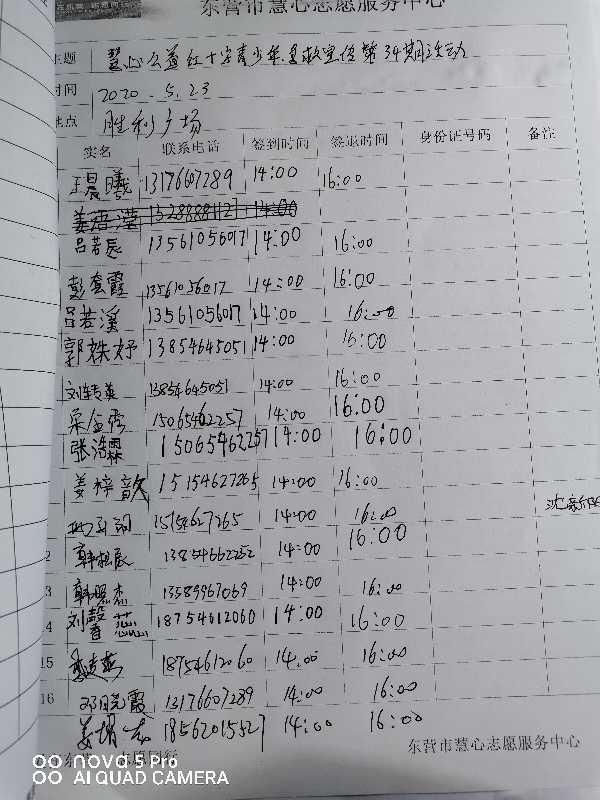 东营市慧心志愿服务中心
主题 慧心公益红十字青少年急救宣传第34期活动
时间 2020.5.23
地点 胜利广场
实名 联系电话 签到时间 签退时间 身份证号码 备注
王晨曦 13176607289 14:00 16:00
姜语滢 13288881127 14:00
吕若辰 13561056017 14:00 16:00
彭奎霞 13561056017 14:00 16:00
吕若溪 13561056017 14:00 16:00
郭姝妤 13854645051 14:00 16:00
13854645051 14:00 16:00
15065462257 14:00 16:00
张浩霖 15065462257 14:00 16:00
姜梓歆 15154627265 14:00 16:00
15154627265 14:00 16:00
2 韩松辰 13854662252 14:00 16:00
3 韩照杰 13589967069 14:00 16:00
4 刘馨蕊 18754612060 14:00 16:00
15 18754612060 14:00 16:00
16 邓晓霞 13176607289 14:00 16:00
姜增志 18562015527 14:00 16:00
东营市慧心志愿服务中心
nova 5 Pro
AI QUAD CAMERA